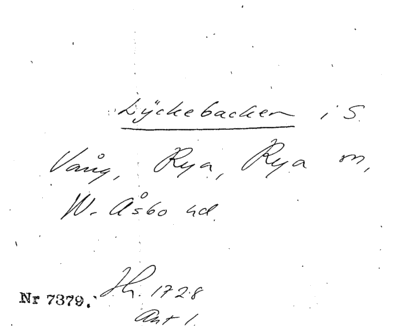 Lyckebacken i S.
Vång, Rya, Rya sn,
W. Åsbo hd.
Nr 7379. Jb. 1728
Art 1.